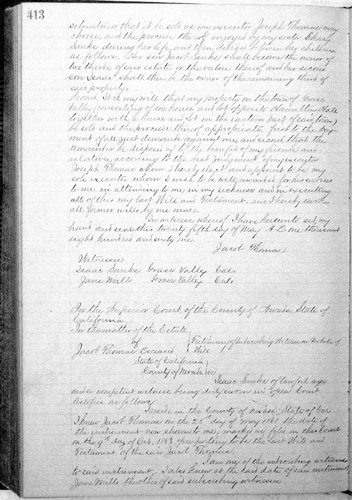 413
situation or that it be sold as my executor Joseph Thomas may
choose, and the proceeds be enjoyed by my sister
Sanks during her life, and then
as follows. Her son Jacob Sanks shall become the owner of
two thirds of said estate or the value thereof and her second
son Isaac shall then be the owner of the remaining third of
said property.
Second. It is my will that my property in the town of Grass
Valley, consisting of one house and lot opposite Hall
together with a house and lot on the eastern part of said town,
be sold and the proceeds thereof appropriated first to the pay-
ment of all just demands against me, and second that the
remainder be disposed of to the benefit of my friends and
relatives, according to the best judgement of my executor
Joseph Thomas whom I hereby elect and appoint to be my
sole executor whom I wish to be well rewarded for his services
to me in attending to me in my sickness and in executing
all of this my last Will and Testament, and I hereby revoke
all former wills by me made.
In witness whereof I have hereunto set my
hand and seal this twenty fifth day of May A.D. one thousand
eight hundred and sixty one.
Jacob Thomas
Witnesses
Isaac Sanks Grass Valley Cal.
Jane Mills Grass Valley Cal.
In the Superior Court of the County of Nevada State of
California
In the matter of the Estate
of
Jacob Thomas Deceased
Testimony of Subscribing Witness on Probate of
Will
State of California
County of Nevada
Isaac Sanks of lawful age
and a competent witness being duly sworn in open Court
testifies as follows
I reside in the County of Nevada, State of Cal.
I knew Jacob Thomas on the 25th day of May 1861 the date of
the instrument now shown to me, marked as filed in this Court
on the 9th day of Oct. 1883 purporting to be the last Will and
Testament of the said Jacob Thomas.
I am one of the subscribing witnesses
to said instrument. I also knew at the said date of said instrument
Jane Mills the other of said subscribing witnesses.